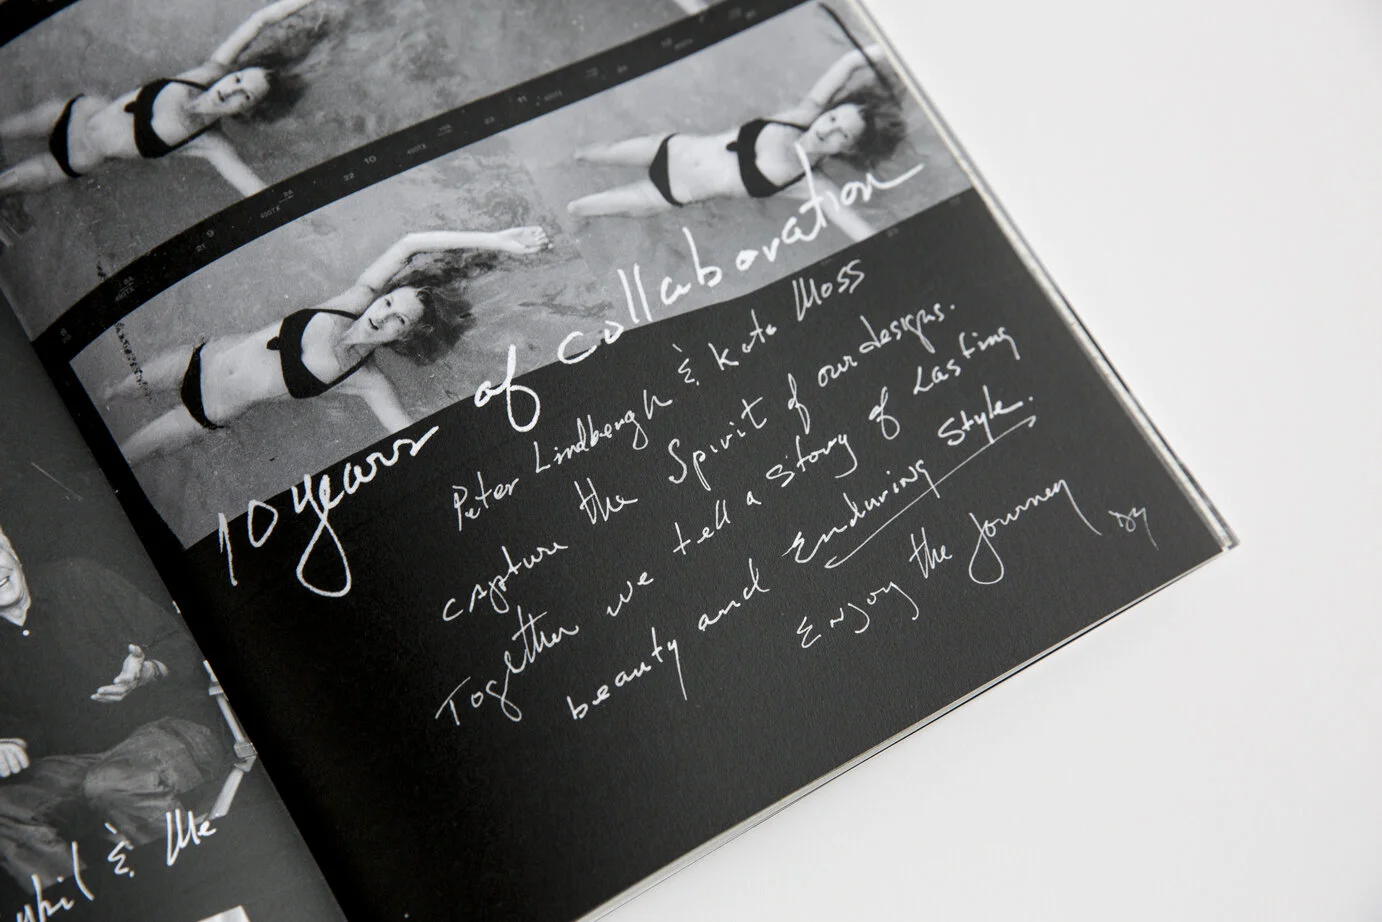 10 years of collaboration
Peter Lindbergh & Kate Moss
capture the Spirit of our designs.
Together we tell a story of Lasting
beauty and Enduring Style.
Enjoy the Journey
Dy
& Me